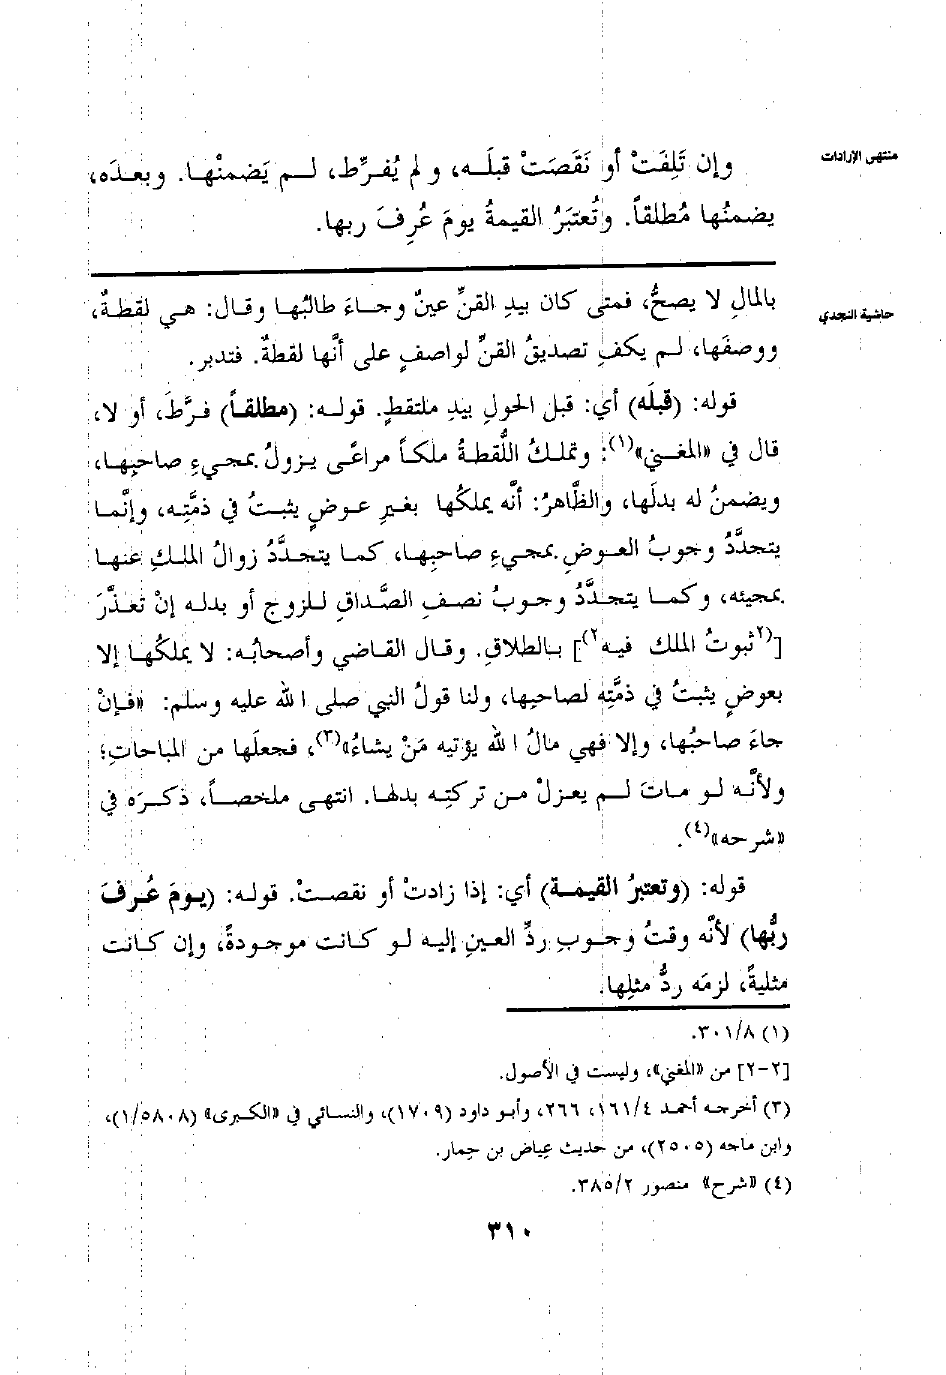 منتهى الإرادات
وإن تَلِفَتْ أو نَقَصَتْ قبلَه، ولم يُفرِّط، لم يَضمنْها. وبعدَه،
يضمنُها مُطلقاً. وتُعتبَرُ القيمةُ يومَ عُرِفَ ربها.
حاشية النجدي
بالمالِ لا يصحُّ، فمتى كان بيدِ القنِّ عينٌ وجاءَ طالبُها وقال: هي لقطةٌ،
ووصفَها، لم يكفِ تصديقُ القنِّ لواصفٍ على أنَّها لقطةٌ. فتدبر.
قوله: (قبلَه) أي: قبل الحولِ بيدِ ملتقطٍ. قوله: (مطلقاً) فرَّطَ، أو لا،
قال في «المغني»(١): وتملكُ اللُّقطةُ ملكاً مراعًى يزولُ بمجيءِ صاحبِها،
ويضمنُ له بدلَها، والظَّاهرُ: أنَّه يملكُها بغيرِ عوضٍ يثبتُ في ذمَّتِه، وإنَّما
يتجدَّدُ وجوبُ العوضِ بمجيءِ صاحبِها، كما يتجدَّدُ زوالُ الملكِ عنها
بمجيئه، وكما يتجدَّدُ وجوبُ نصفِ الصَّداقِ للزوج أو بدله إنْ تعذَّرَ
[(٢ثبوتُ الملك فيه٢)] بالطلاقِ. وقال القاضي وأصحابُه: لا يملكُها إلا
بعوضٍ يثبتُ في ذمَّتِه لصاحبِها، ولنا قولُ النبي صلى الله عليه وسلم: «فإنْ
جاءَ صاحبُها، وإلا فهي مالُ الله يؤتيه مَنْ يشاءُ»(٣)، فجعلَها من المباحاتِ؛
ولأنَّه لو ماتَ لم يعزلْ من تركتِه بدلها. انتهى ملخصاً، ذكرَه في
«شرحه»(٤).
قوله: (وتعتبرُ القيمة) أي: إذا زادتْ أو نقصتْ. قوله: (يومَ عُرفَ
ربُّها) لأنَّه وقتُ وجوبِ ردِّ العينِ إليه لو كانت موجودةً، وإن كانت
مثليةً، لزمَه ردُّ مثلِها.
(١) ٣٠١/٨.
[٢-٢] من «المغني»، وليست في الأصول.
(٣) أخرجه أحمد ١٦١/٤، ٢٦٦، وأبو داود (١٧٠٩)، والنسائي في «الكبرى» (١/٥٨٠٨)،
وابن ماجه (٢٥٠٥)، من حديث عِياض بن حِمار.
(٤) «شرح» منصور ٣٨٥/٢.
٣١٠